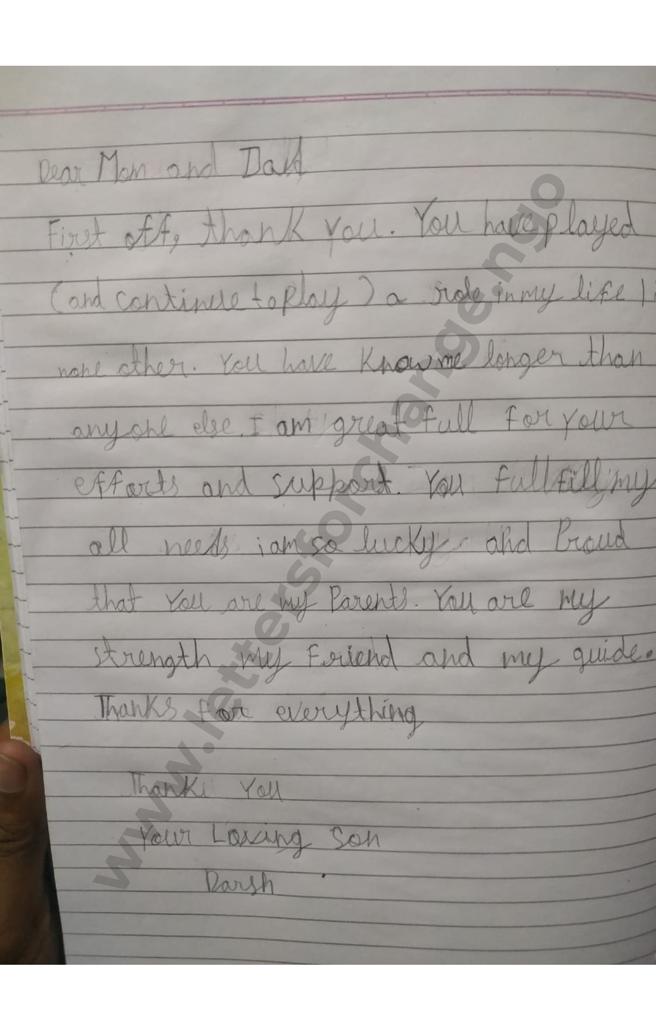 Dear Mom and Dad
First off, thank you. You have played
(and continue to play) a role in my life
none other. You have know me longer than
any one else. I am great full for your
efforts and support. You full fill my
all needs i am so lucky and Proud
that You are my Parents. You are my
strength my Friend and my guide.
Thanks for everything
Thank You
Your Loving Son
Darsh
www.lettersforchange.ngo